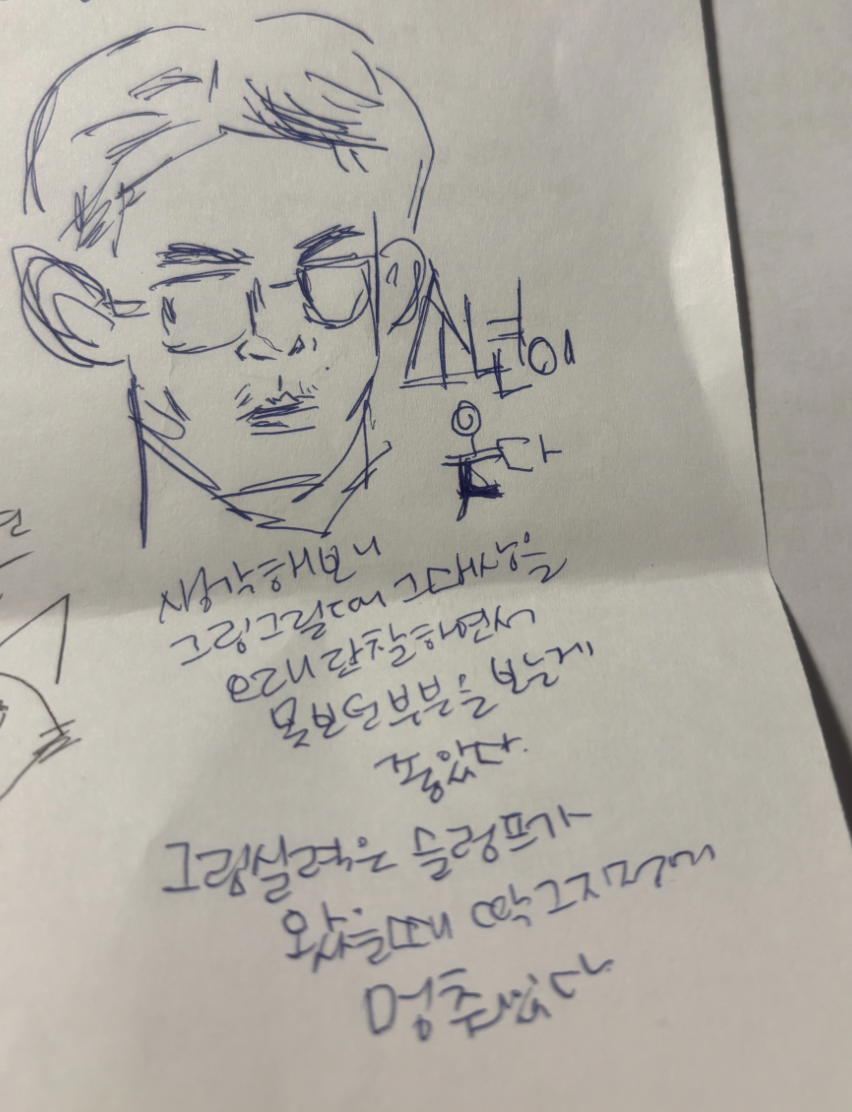 생각해보니
그림그릴때 그대상을
오래 관찰하면서
못보던부분을 보는게
좋았다.
그림실력은 슬럼프가
왔을때 딱그지점에
멈추었다